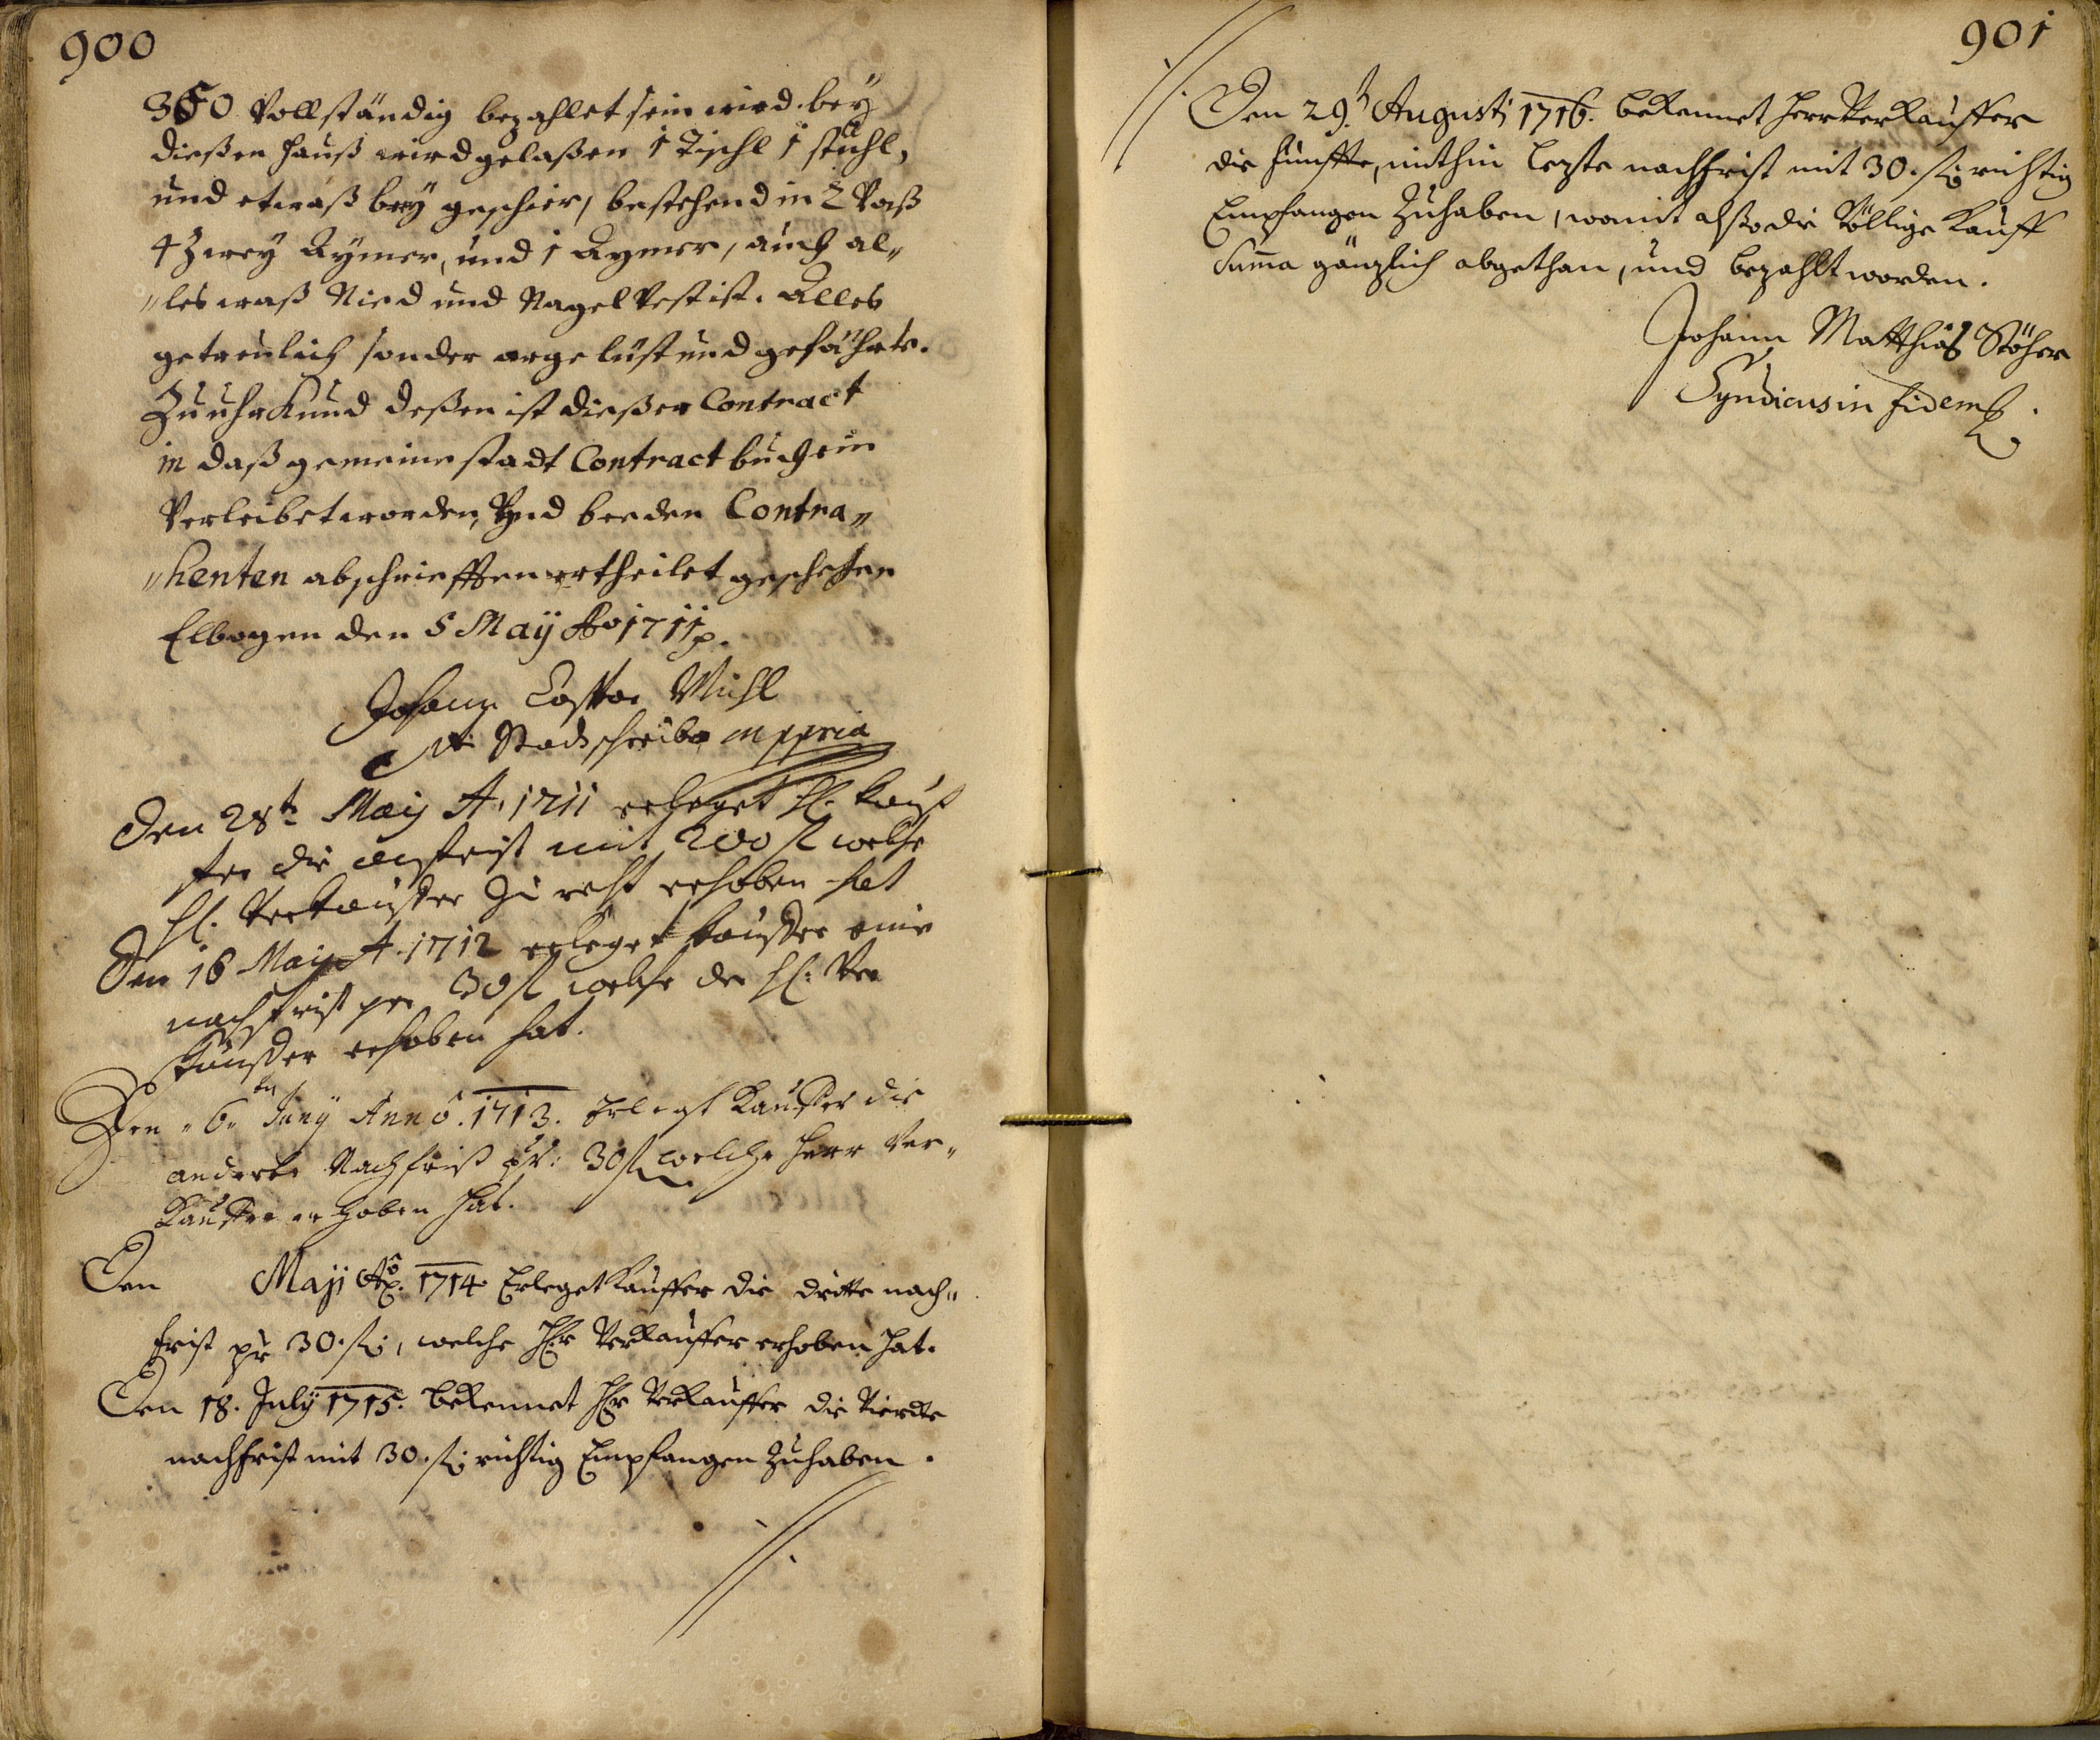 900
350 Vollständig bezahlet sein wird. bey
dießen Hauß wird gelaßen 1 Tischl 1 stuhl,
und etwaß brey geschier, bestehend in 2 Vaß
4 Zwey Aÿmer, und 1 Aymer, auch al„
„les waß Nied und Nagel Vest ist. Alles
getreulich sonder arge lüst und gefährte.
Zu uhrkund deßen ist dießer Contract
in daß gemeine stadt Contract buch ein
Verleibet worden, Vnd beeden Contra„
„henten abschriefften ertheilet geschehen
Elbogen den 5 Maÿ Ao 1711 p.
Johann Michl
Stadtschreiber mppria
Den 28t Maÿ A. 1711 erleget H. kauf
fer die anfrist mit 200 fl welche
H. Verkauffer zu recht erhoben hat
Den 16 Maÿ A. 1712 erleget kauffer eine
nachfrist per 30 fl welche der H: Ver
kauffer erhoben hat.
Den „6ten Junÿ Anno. 1713. Erlegt Kauffer die
anderte Nachfrist pr: 30 fl welche Herr Ver„
Kauffer erhoben hat.
Den Maÿ Ao. 1714. Erleget Kauffer die dritte nach„
frist pr 30. fl, welche Hr Verkauffer erhoben hat.
Den 18. July 1715. bekennet Hr Verkauffer die Vierdte
nachfrist mit 30. fl richtig Empfangen Zuhaben.
901
Den 29.t Augusti 1716. bekennet Herr Verkauffer
die fünffte, mithin lezte nachfrist mit 30. fl richtig
Empfangen Zuhaben, womit also die Völlige Kauff
Summa gänzlich abgethan, und bezahlt worden.
Johann Matthias Stöhr
Syndicus in fidem